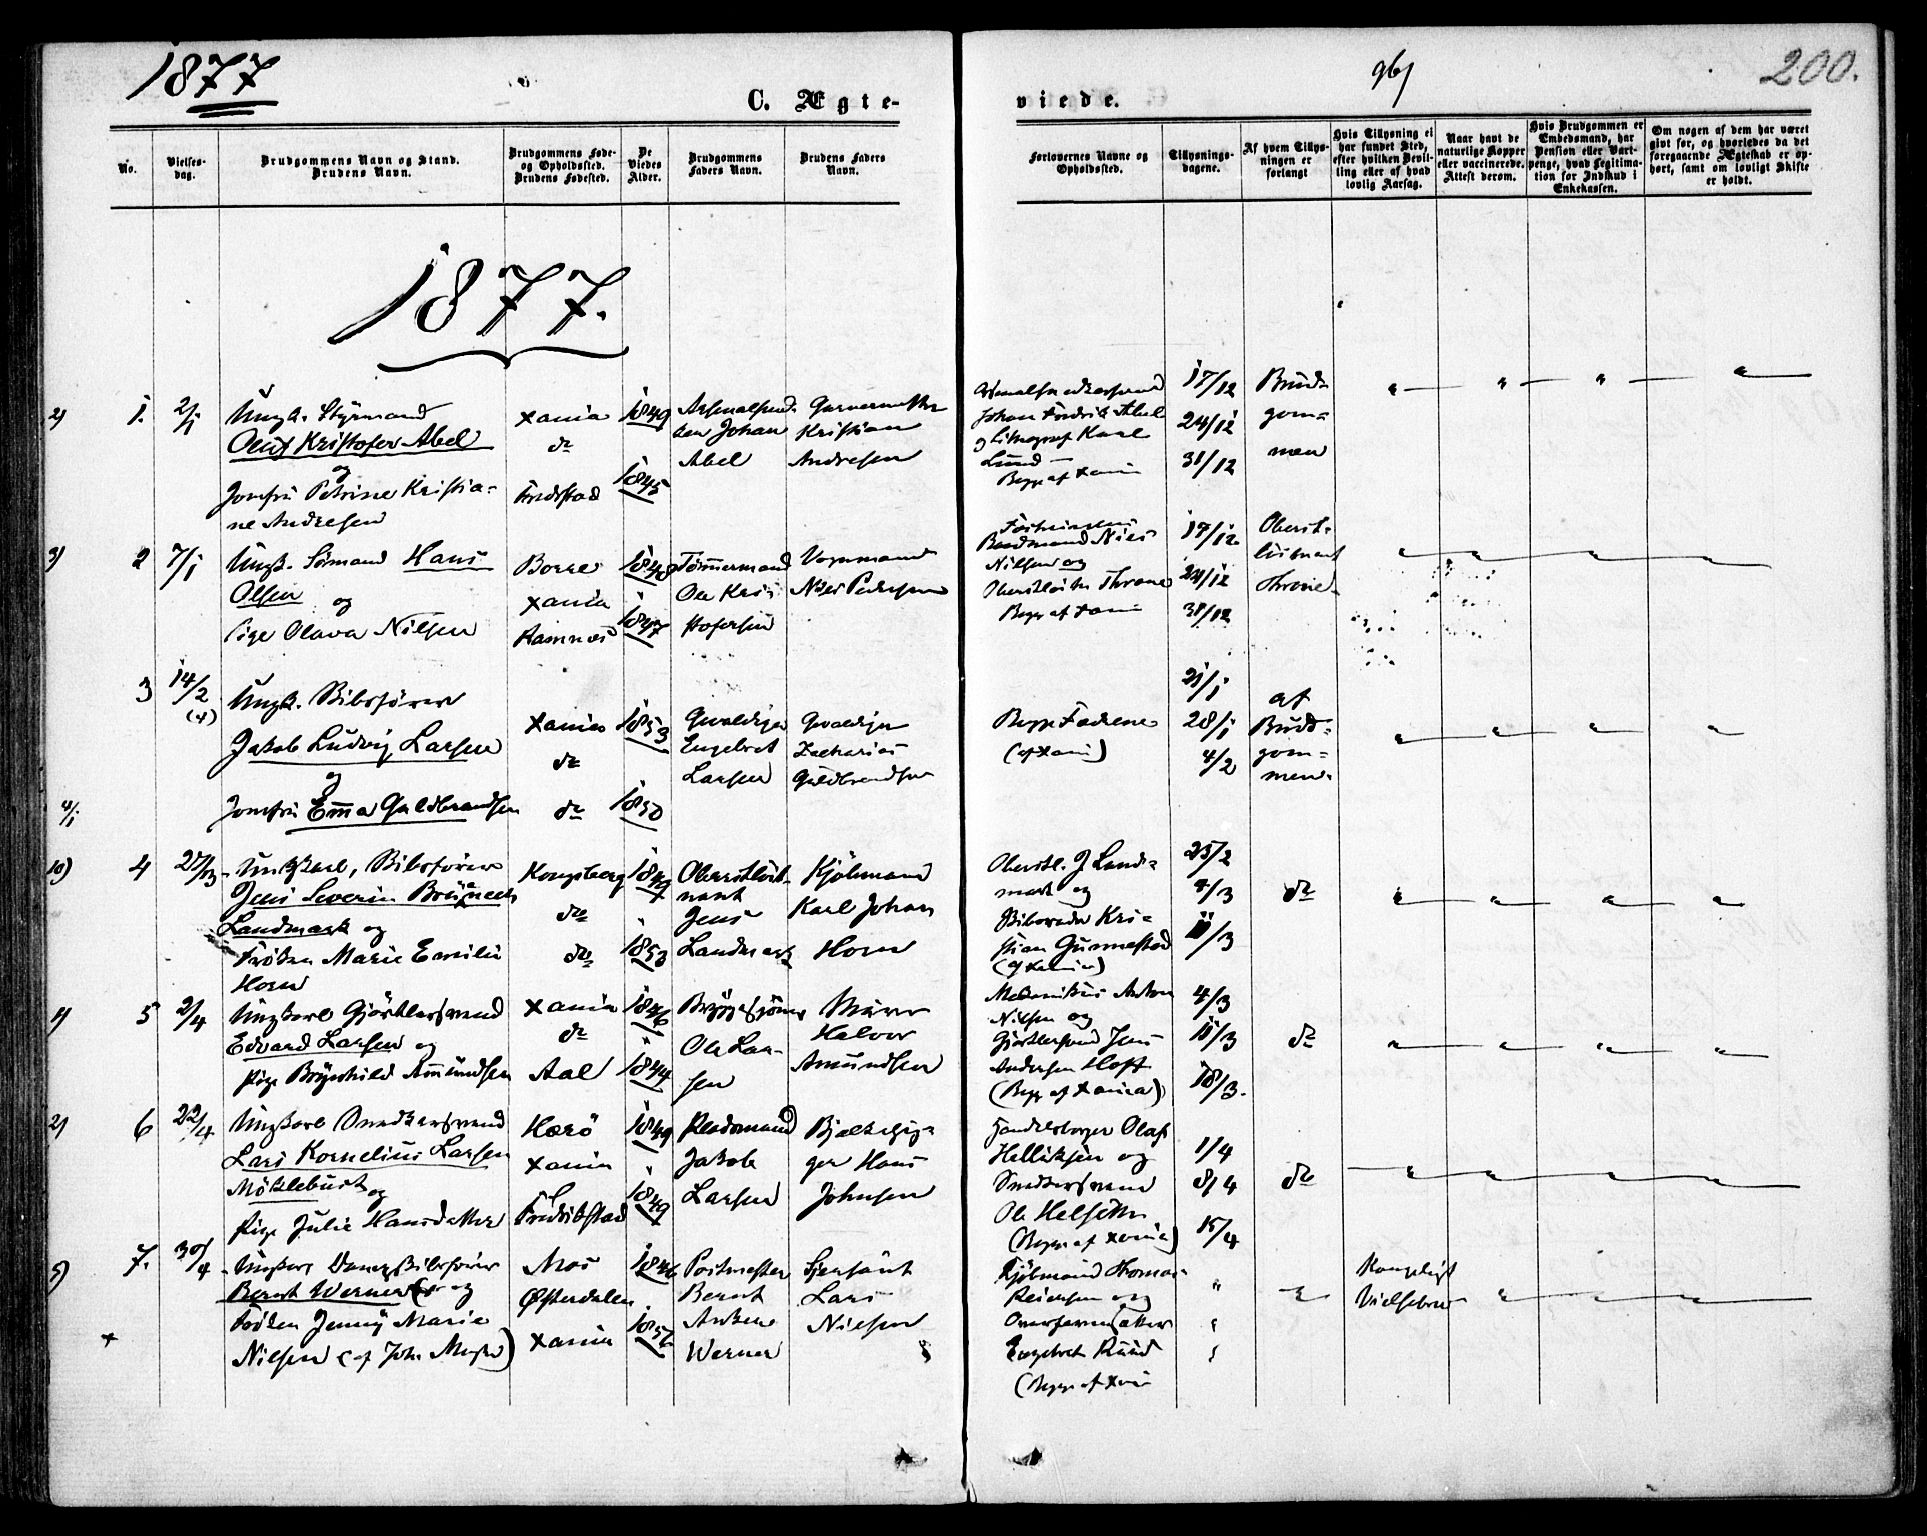 1877
961
200.
C. Ægte-
viede.
No.
Vielses-
dag.
Brudgommens Navn og Stand.
Brudens Navn.
Brudgommens Føde-
og Opholdssted.
Brudens Fødested.
De
Viedes
Alder.
Brudgommens
Faders Navn.
Brudens Faders
Navn.
Forlovernes Navne og
Opholdssted.
Tillysnings-
dagene.
Af hvem Tillys-
ningen er
forlangt
Hvis Tillysning ei
har fundet Sted,
efter hvilken Bevil-
ling eller af hvad
lovlig Aarsag.
Naar havt de
naturlige Kopper
eller vaccinerede.
Attest derom.
Hvis Brudgommen er
Embedsmand, har
Pension eller Vart-
penge, hvad Legitima-
tion for Indskud i
Enkekassen.
Om nogen af dem har været
gift før, og hvorledes da det
foregaaende Ægteskab er op-
hørt, samt om lovligt Skifte
er holdt.
1877.
2) 1. 2/1
Ungk. Styrmand
Oluf Kristofer Abel
og
Jomfru Petrine Kristia-
ne Andresen
Xania
do
Fredrstad
1849
1845
Johan
Abel
Garvermester
Kristian
Andresen
Johan Fredrik Abel
og Litograf Karl
Lund
Begge af Xania
17/12
24/12
31/12
Brud-
gom-
men
3) 2 7/1
Ungk. Sømand Hans
Olsen
og
Pige Olava Nilsen
Borre
Xania
Ramnæs
1848
1847
Tømmermand
Ole Kri-
stofersen
Vognmand
Nils Pedersen
Nils
Nilsen og
Oberstløitn. Throne
Begge af Xania
17/12
24/12
31/12
Oberst-
løitnant
Throne
3 14/2
(4)
Ungk. Bibsfører
Jakob Ludvig Larsen
og
Jomfru Emma Guldbrandsen
4/1
Xania
do
do
1853
1850
Engebret
Larsen
Zacharias
Guldbrandsen
Begge Fædrene
(af Xania)
21/1
28/1
4/2
af
Brud-
gom-
men.
10) 4 27/3
Ungkarl, Bibsfører
Jens Severin
Landmark og
Frøken Marie Emilie
Horn
Kongsberg
do
do
1849
1853
Oberstløit-
nant
Jens
Landmark
Kjøbmand
Karl Johan
Horn
Oberstl. J Land-
mark og
Kri-
stian Gunnestad
(af Xania)
25/2
4/3
11/3
do
4) 5 2/4
Ungkarl Gjørtlersvend
Edvard Larsen og
Pige Brynhild Ammundsen
Xania
do
Aal
1846
1844
Ole Lar-
sen
Murer
Halvor
Amundsen
Mekanikus Anton
Nilsen og
Gjørtlersvend Jens
Andersen Hoff
(Begge af Xania)
4/3
11/3
18/3.
do
2) 6 22/4
Ungkarl Snedkersvend
Lars Kornelius Larsen
Möklebust og
Pige Julie Hansdatter
Herö
Xania
Fredrikstad
1849
1849
Pladsmand
Jakob
Larsen
Hans
Johnsen
Olaf
Helliksen og
Snedkersvend
Ole
(Begge af Xania)
1/4
8/4
15/4
do
5) 7. 30/4
Bernt Werner og
Frøken Jenny Marie
Nilsen (af Joh. Mgh)
Mos
Østerdalen
Xania
1846
1856
Postmester
Bernt
Anker
Werner
Sjersant
Lars
Nilsen
Kjøbmand Thomas
Reiersen og
Engebret Ruud
(Begge af Xania
Kongeligt
Vielsebrev